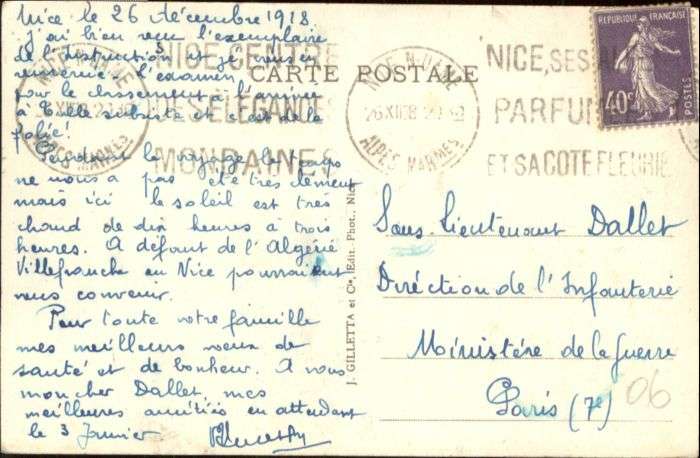 Nice le 26 décembre 1918
j'ai bien reçu l'exemplaire
de l'instruction et je vous en
remercie. L'examen,
pour le classement à l'arrivée
à Tulle subsiste et c'est de la
folie!
Pendant le voyage le temps
ne nous a pas été très clément
mais ici le soleil est très
chaud de dix heures à trois
heures. A défaut de l'Algérie
Villefranche ou Nice pourraient
nous convenir.
Pour toute votre famille
mes meilleurs voeux de
santé et de bonheur. A vous
mon cher Dallet, mes
meilleures amitiés en attendant
le 3 Janvier
CARTE POSTALE
NICE CENTRE
DES ÉLÉGANCES
MONDAINES
NICE
ALPES MARMES
NICE, SES
PARFUMS
ET SA COTE FLEURIE
RÉPUBLIQUE FRANÇAISE
40c
POSTES
J. GILLETTA et Cie, Edit. Phot., Nice
Sous-Lieutenant Dallet
Direction de l'Infanterie
Ministère de la Guerre
Paris (7e)
06